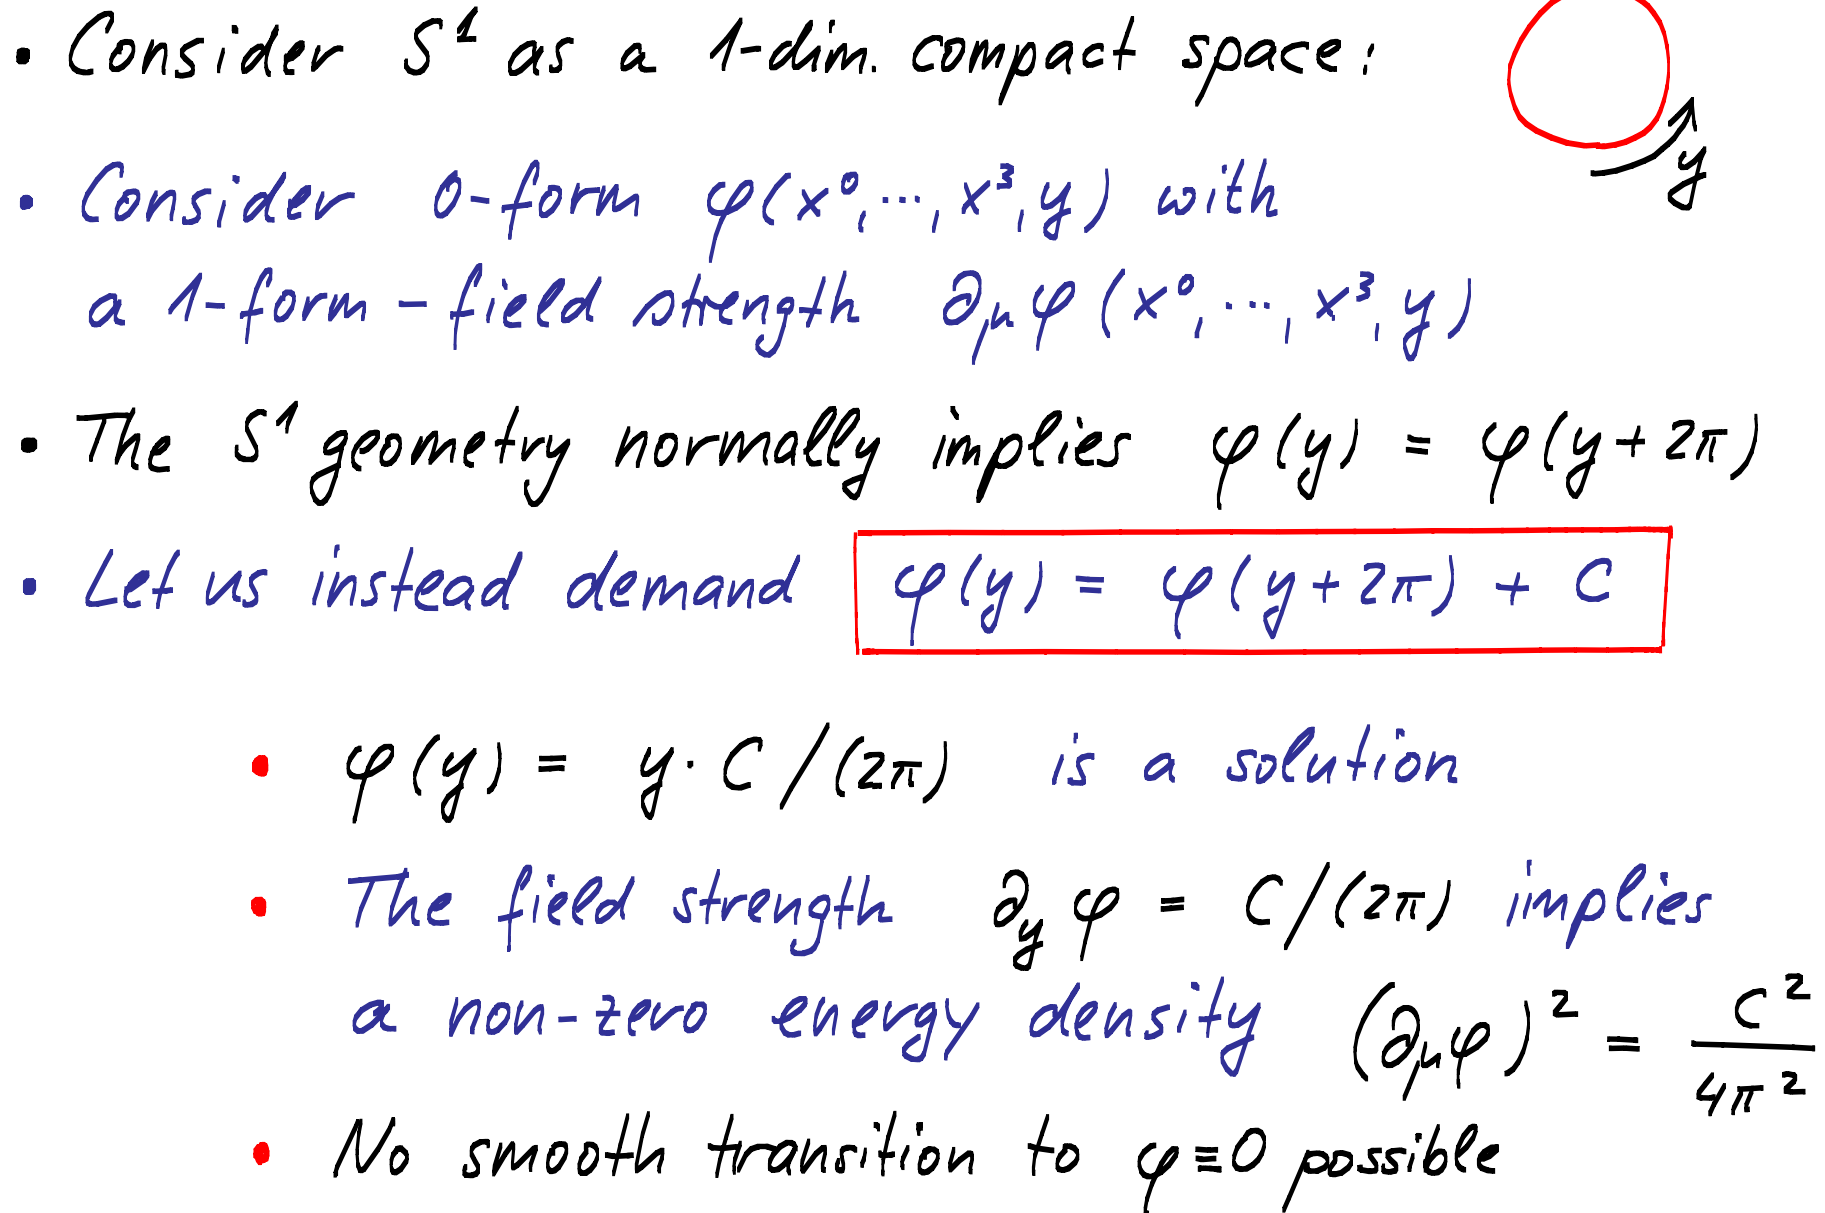 • Consider S¹ as a 1-dim. compact space:
y
• Consider 0-form φ(x⁰, ···, x³, y) with
a 1-form - field strength ∂_μ φ (x⁰, ···, x³, y)
• The S¹ geometry normally implies φ(y) = φ(y + 2π)
• Let us instead demand φ(y) = φ(y + 2π) + C
• φ(y) = y · C / (2π) is a solution
• The field strength ∂_y φ = C / (2π) implies
a non-zero energy density (∂_μ φ)² = C² / 4π²
• No smooth transition to φ ≡ 0 possible